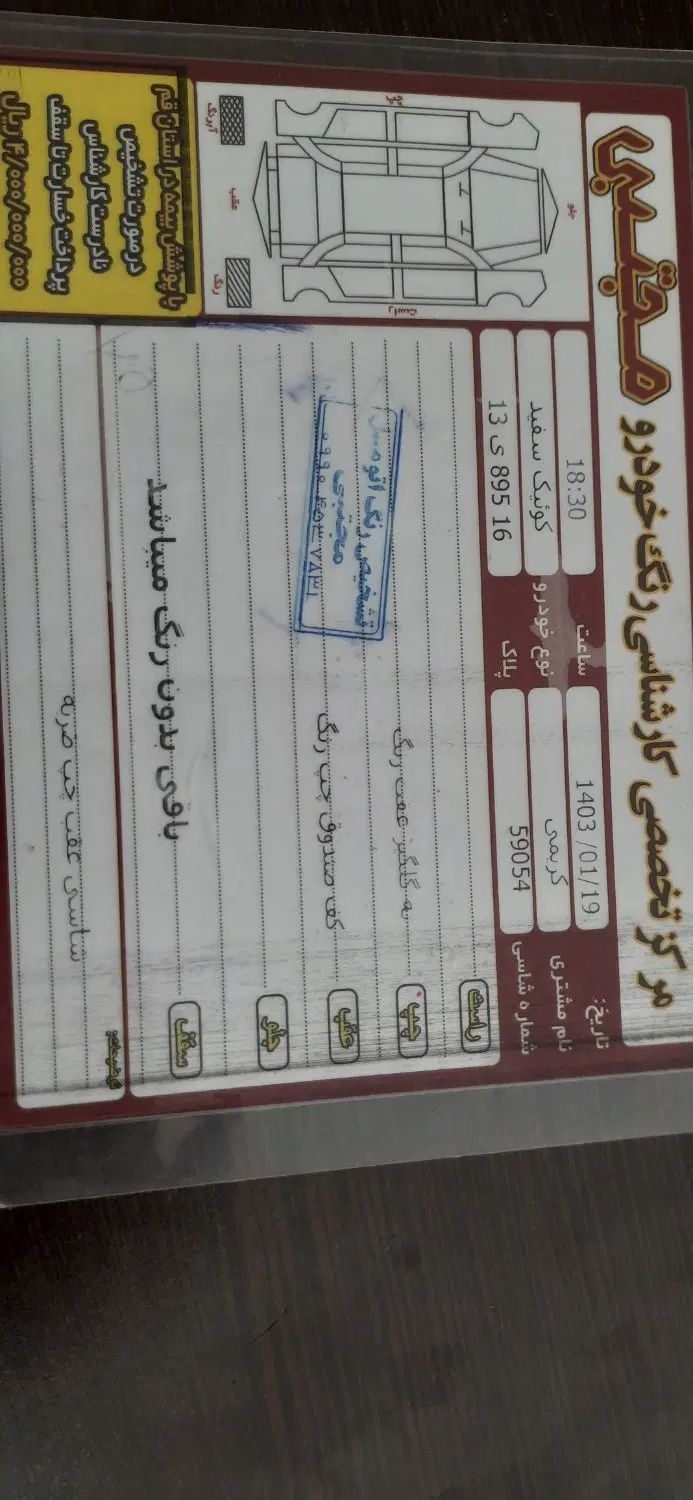 مرکز تخصصی کارشناسی رنگ خودرو مجتبی
تاریخ: 1403 /01/19 ساعت 18:30
نام مشتری کریمی نوع خودرو کوئیک سفید
شماره شاسی 59054 پلاک 13 ی 895 16
جلو
عقب
راست
رنگ
آبرنگ
راست
چپ گلگیر عقب رنگ
عقب کف صندوق چپ رنگ
جلو
سقف باقی بدون رنگ میباشد
تشخیص رنگ اتومبیل
مجتبی
توضیحات:
شاسی عقب چپ ضربه
با پوشش بیمه در استان قم
در صورت تشخیص
نادرست کارشناس
پرداخت خسارت تا سقف
۴/۰۰۰/۰۰۰/۰۰۰ ریال